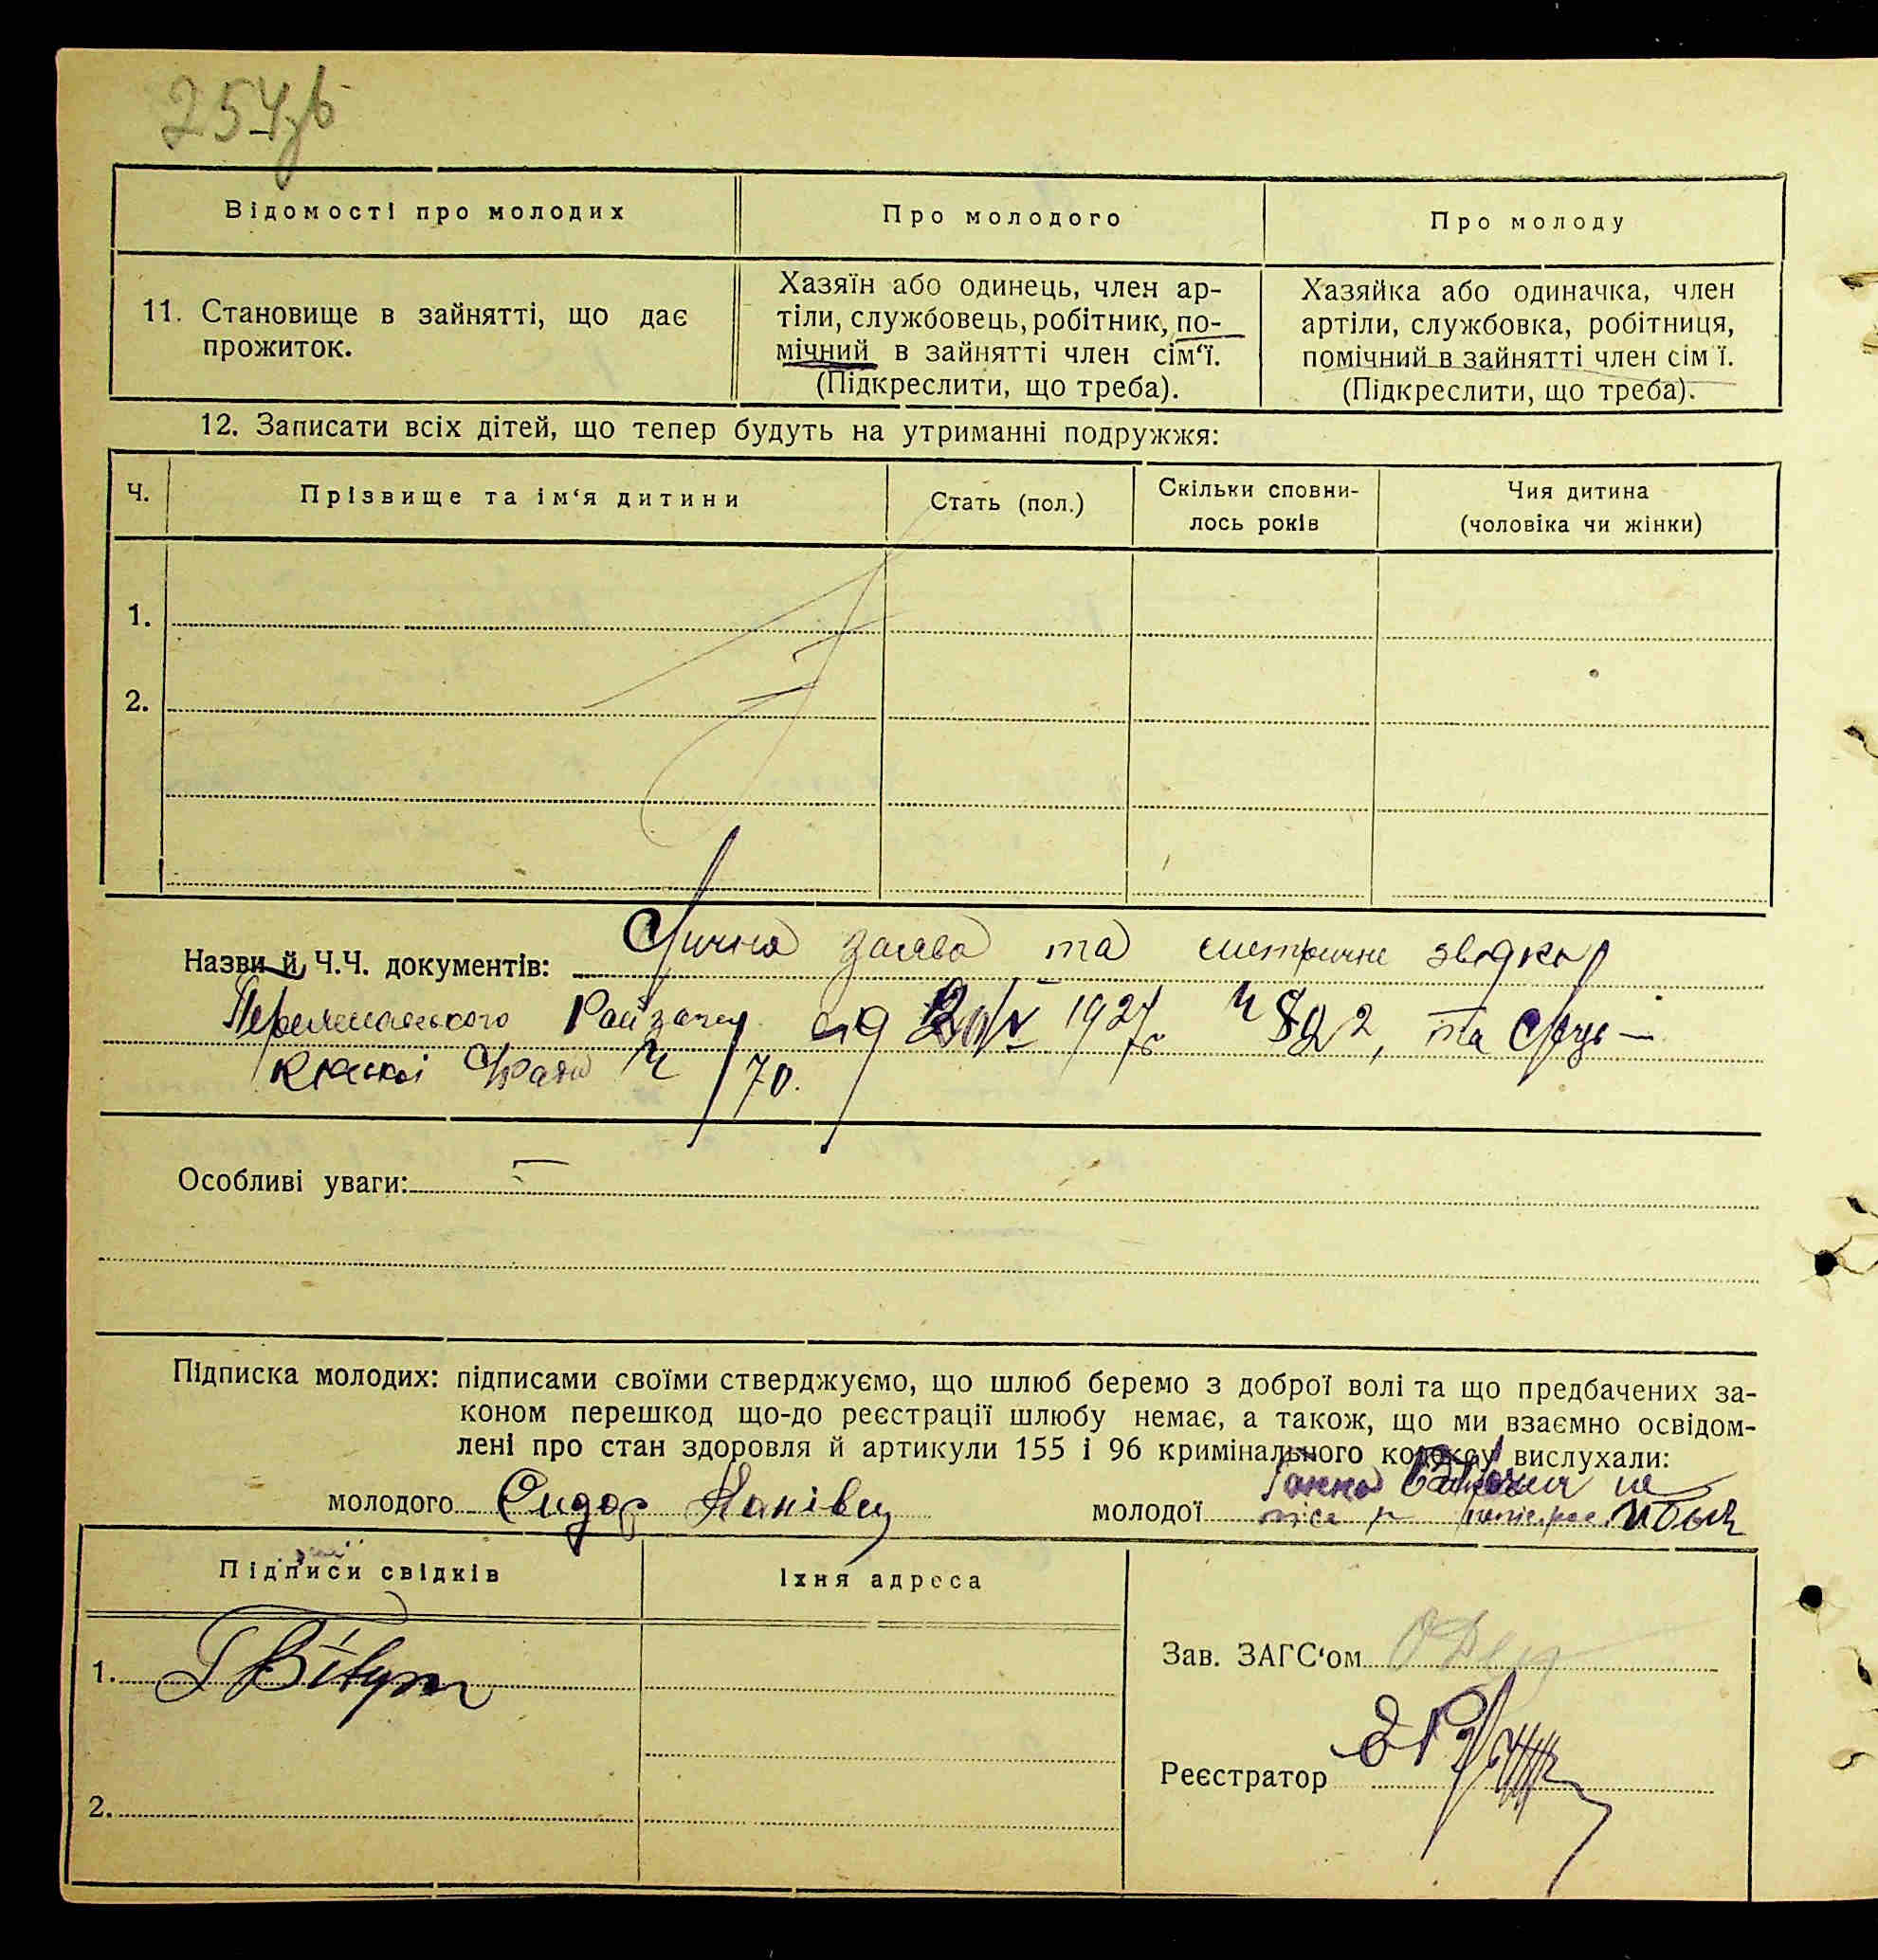 254зв
Відомості про молодих
Про молодого
Про молоду
11. Становище в зайнятті, що дає
прожиток.
Хазяїн або одинець, член ар-
тіли, службовець, робітник, по-
мічний в зайнятті член сім'ї.
(Підкреслити, що треба).
Хазяйка або одиначка, член
артіли, службовка, робітниця,
помічний в зайнятті член сім ї.
(Підкреслити, що треба).
12. Записати всіх дітей, що тепер будуть на утриманні подружжя:
Ч.
Прізвище та ім'я дитини
Стать (пол.)
Скільки сповни-
лось років
Чия дитина
(чоловіка чи жінки)
1.
2.
Назви й Ч.Ч. документів: заява та метричне
1927 та
70.
Особливі уваги:
Підписка молодих: підписами своїми стверджуємо, що шлюб беремо з доброї волі та що предбачених за-
коном перешкод що-до реєстрації шлюбу немає, а також, що ми взаємно освідом-
лені про стан здоровля й артикули 155 і 96 кримінального кодексу вислухали:
молодого Сидор
молодої Ганна
Підписи свідків
Їхня адреса
1.
2.
Зав. ЗАГС'ом
Реєстратор